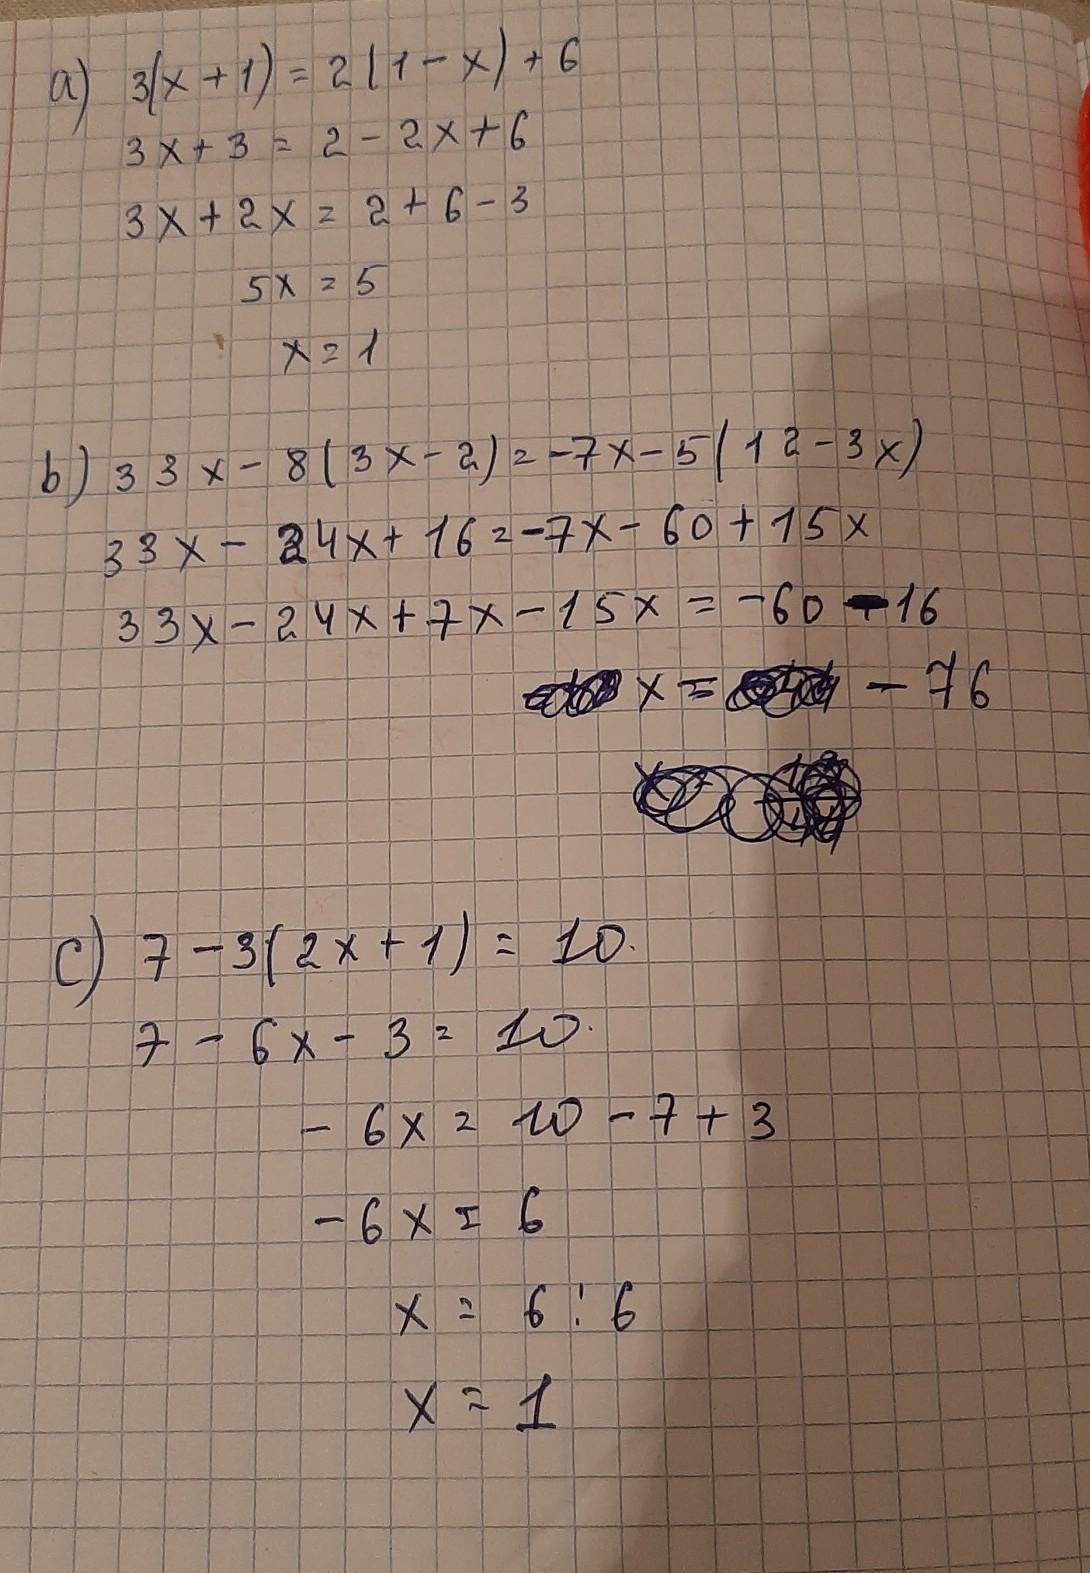 a) 3(x+1) = 2(1-x)+6
3x+3 = 2-2x+6
3x+2x = 2+6-3
5x = 5
x = 1
b) 33x-8(3x-2) = -7x-5(12-3x)
33x-24x+16 = -7x-60+15x
33x-24x+7x-15x = -60-16
x = -76
c) 7-3(2x+1) = 10.
7-6x-3 = 10.
-6x = 10-7+3
-6x = 6
x = 6:6
x = 1